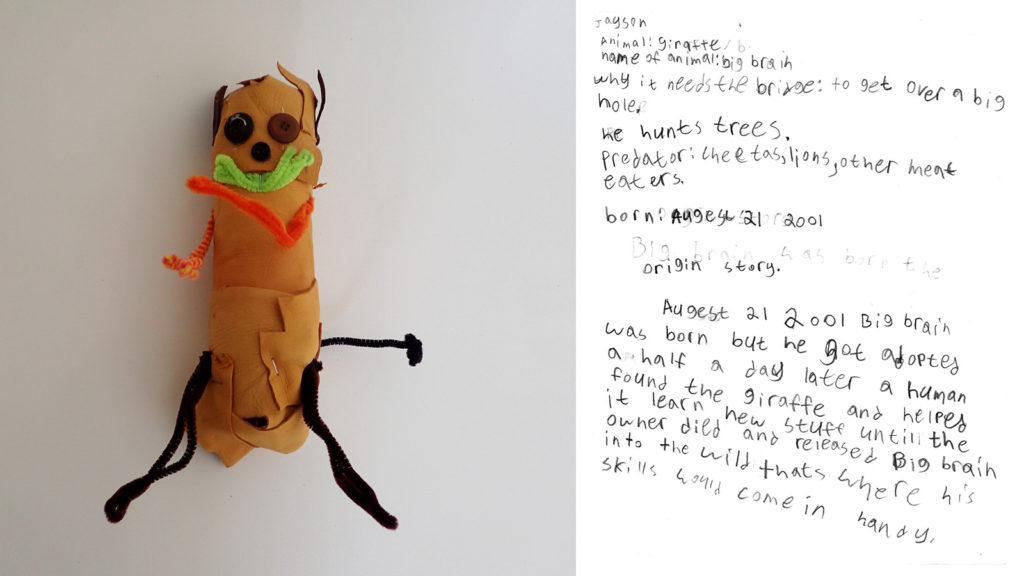 Jayson
Animal: giraffe
name of animal: big brain
why it needs the bridge: to get over a big
hole.
He hunts trees.
Predator: Cheetas, lions, other meat
eaters.
born: Augest 21 2001
Big brain was born the
origin story.
Augest 21 2001 Big brain
was born but he got adopted
a half a day later a human
found the giraffe and helped
it learn new stuff untill the
owner died and released Big brain
into the wild thats where his
skills would come in handy.